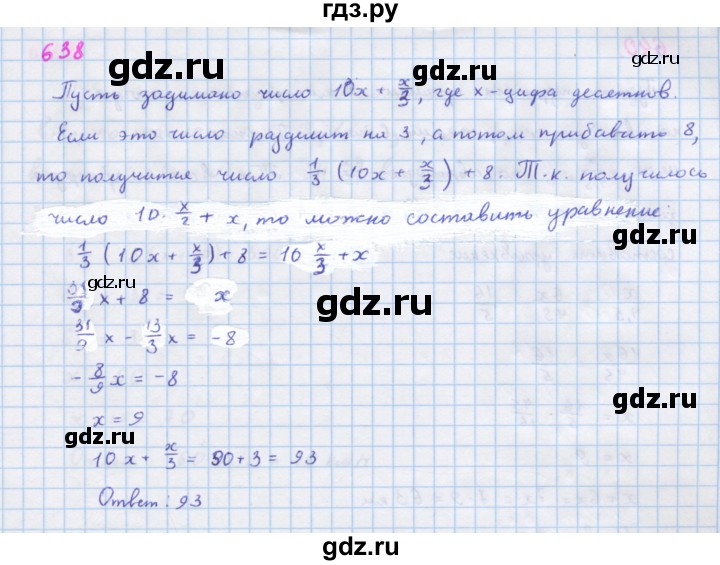 гдз.ру
638
Пусть задумано число 10x + x/3, где x - цифра десятков.
Если это число разделит на 3, а потом прибавить 8,
то получится число 1/3 (10x + x/3) + 8. Т.к. получилось
число 10 · x/2 + x, то можно составить уравнение:
1/3 (10x + x/3) + 8 = 10 x/3 + x
31/9 x + 8 = x
31/9 x - 13/3 x = -8
- 8/9 x = -8
x = 9
10x + x/3 = 90 + 3 = 93
Ответ: 93
gdz.ru
gdz.ru
gdz.ru
gdz.ru
gdz.ru
gdz.ru
gdz.ru
gdz.ru
gdz.ru